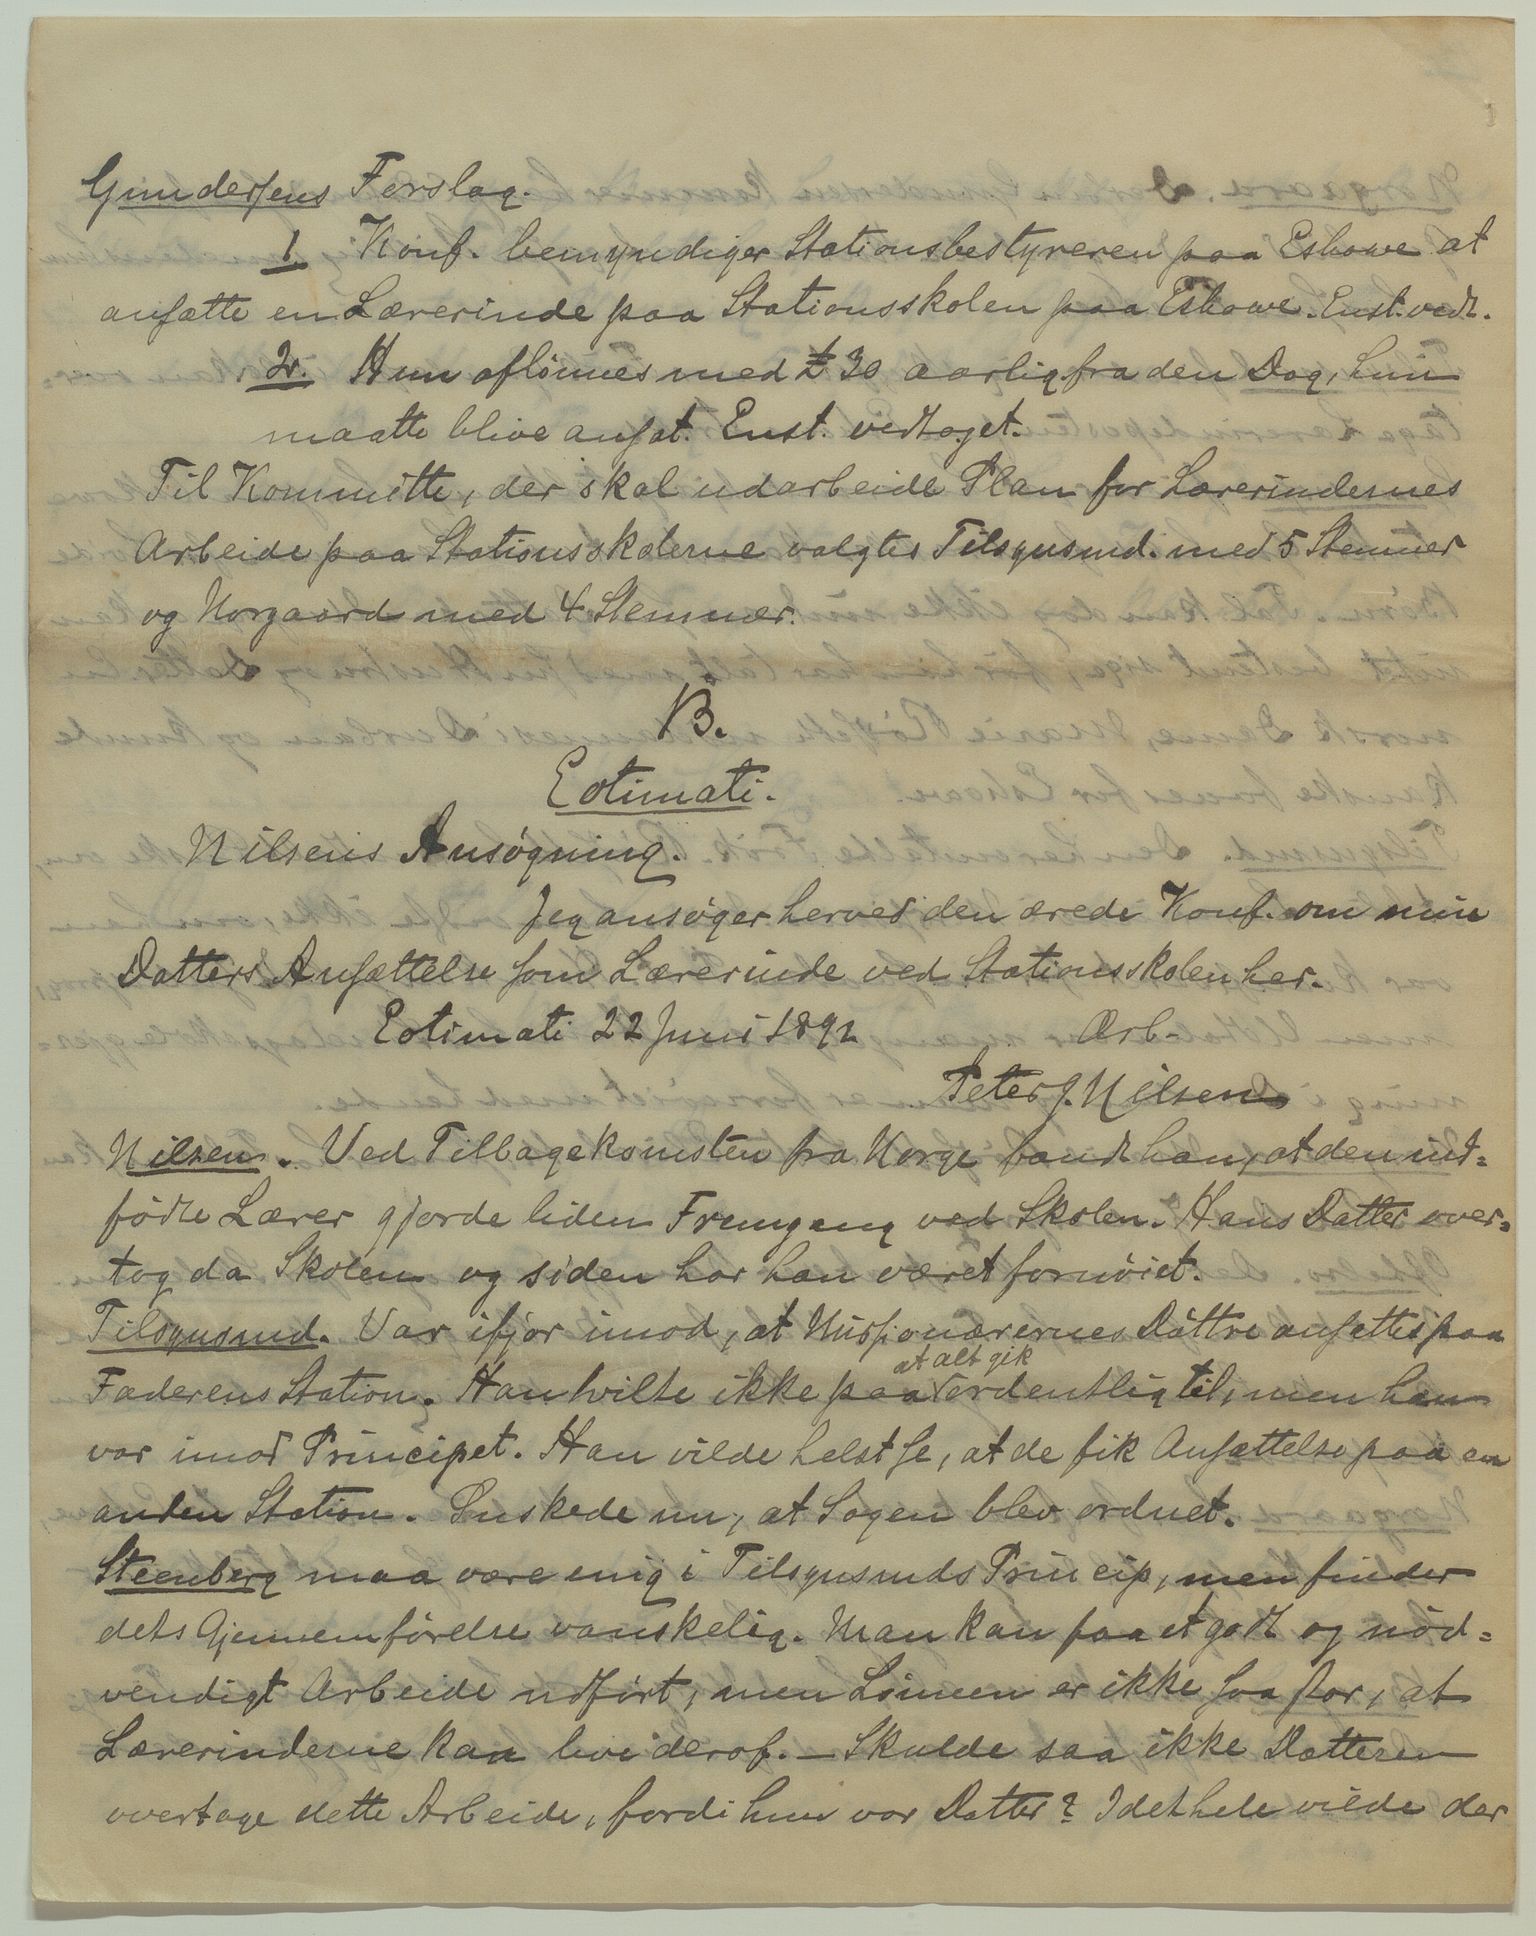 Gundersens Forslag.
1. Konf. bemyndiger Stationsbestyreren paa Eshowe at
ansætte en Lærerinde paa Stationsskolen paa Eshowe. Enst. vedt.
2. Hun aflønnes med £ 30 aarlig fra den Dag, hun
maatte blive ansat. Enst. vedtaget.
Til Kommitte, der skal udarbeide Plan for Lærerindernes
Arbeide paa Stationsskolerne valgtes Tilsynsmd. med 5 Stemmer
og Norgaard med 4 Stemmer.
B.
Eotimati.
Nilsens Ansøgning.
Jeg ansøger herved den ærede Konf. om min
Datters Ansættelse som Lærerinde ved Stationsskolen her.
Eotimati 22 Juni 1892 Ærb-
Peter J. Nilsen
Nilsen. Ved Tilbagekomsten fra Norge fandt han, at den ind-
fødte Lærer gjorde liden Fremgang ved Skolen. Hans Datter over-
tog da Skolen og siden har han været fornøiet.
Tilsynsmd. Var ifjor imod, at Missionærernes Døttre ansættes paa
Faderens Station. Han tvilte ikke paa at alt gik ordentlig til, men han
var imod Principet. Han vilde helst se, at de fik Ansættelse paa en
anden Station. Ønskede nu, at Sagen blev ordnet.
Steenberg maa være enig i Tilsynsmds Princip, men finder
dets Gjennemførelse vanskelig. Man kan faa et godt og nød-
vendigt Arbeide udført, men Lønnen er ikke saa stor, at
Lærerinderne kan leve deraf. — Skulde saa ikke Datteren
overtage dette Arbeide, fordi hun var Datter? I det hele vilde der